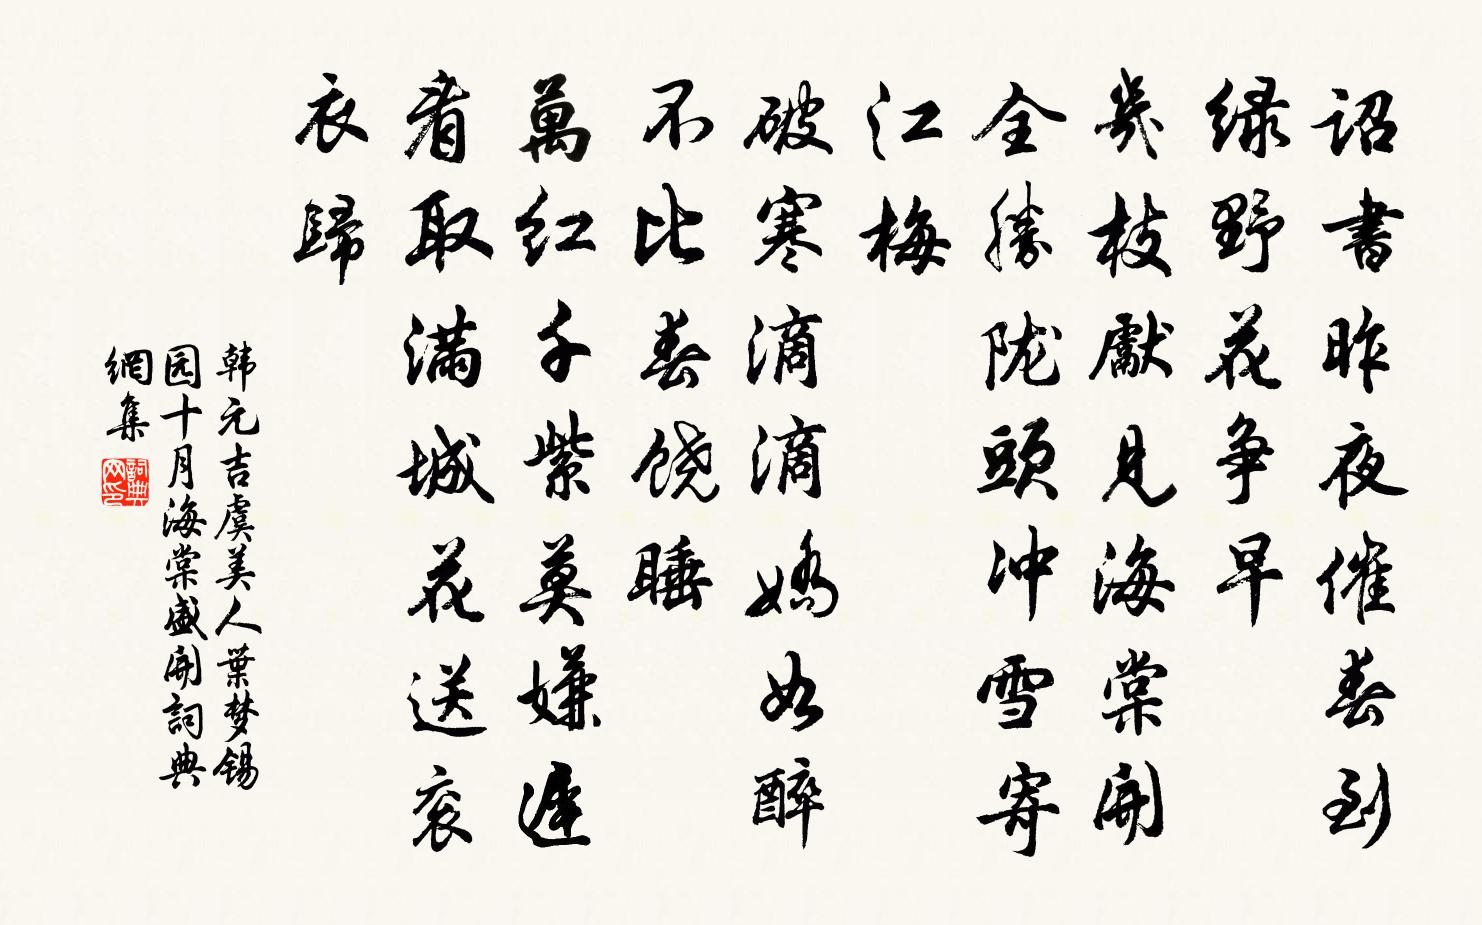 詔書昨夜催春到
绿野花争早
幾枝獻見海棠開
全勝陇頭冲雪寄
江梅
破寒滴滴嬌如醉
不比春饶睡
萬红千紫莫嫌遲
看取滿城花送衮
衣歸
韩元吉虞美人葉梦锡
园十月海棠盛開詞典
網集
詞典網印